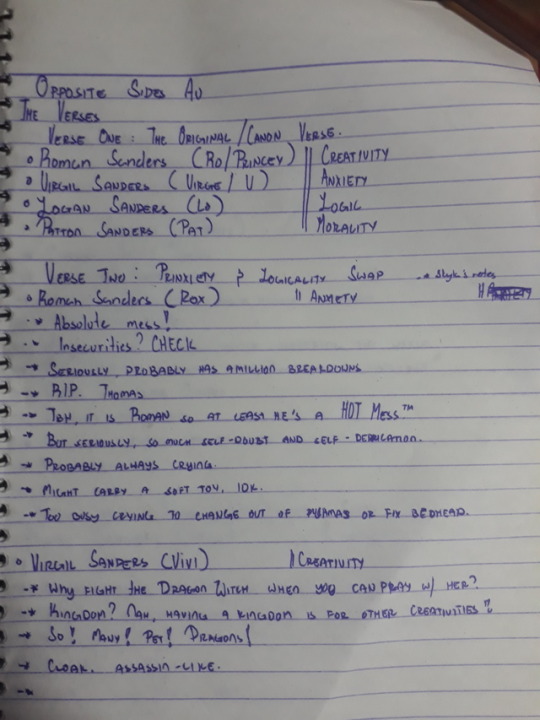 Opposite Sides AU
The Verses
Verse One: The Original/Canon Verse.
• Roman Sanders (Ro/Princey) || Creativity
• Virgil Sanders (Virge/V) || Anxiety
• Logan Sanders (Lo) || Logic
• Patton Sanders (Pat) || Morality
Verse Two: Prinxiety & Logicality Swap → Skyk's notes
• Roman Sanders (Rox) || Anxiety
→ Absolute mess!
→ Insecurities? CHECK
→ Seriously, probably has a million breakdowns
→ RIP. Thomas
→ TBH, it is Roman so at least he's a HOT Mess™
→ But seriously, so much self-doubt and self-
→ Probably always crying.
→ Might carry a soft toy, IDK.
→ Too busy crying to change out of pyjamas or fix bedhead.
• Virgil Sanders (Vivi) || Creativity
→ Why fight the Dragon Witch when you can w/ her?
→ Kingdom? Nah, having a kingdom is for other creativities!!
→ So! Many! Pet! Dragons!
→ Cloak. Assassin-like.
→